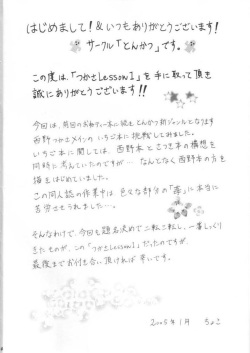 はじめまして!&いつもありがとうございます!
サークル「とんかつ」です。
この度は、「つかさLessonⅠ」を手に取って頂き
誠にありがとうございます!!
今回は、前回の 本に続き とんかつ 新ジャンルとなります
西野つかさメインのいちご本に挑戦してみました。
いちご本に関しては、西野本と さつき本の構想を
同時に考えていたのですが… なんとなく西野本の方を
描きはじめていました。
この同人誌の作業中は 色々な部分の「 」に本当に
苦労させられました…。
そんなわけで、今回も題名決めで二転三転し、一番しっくり
きたものが、この「つかさLessonⅠ」だったのですが、
最後までお付き合い頂ければ幸いです。
2005年1月